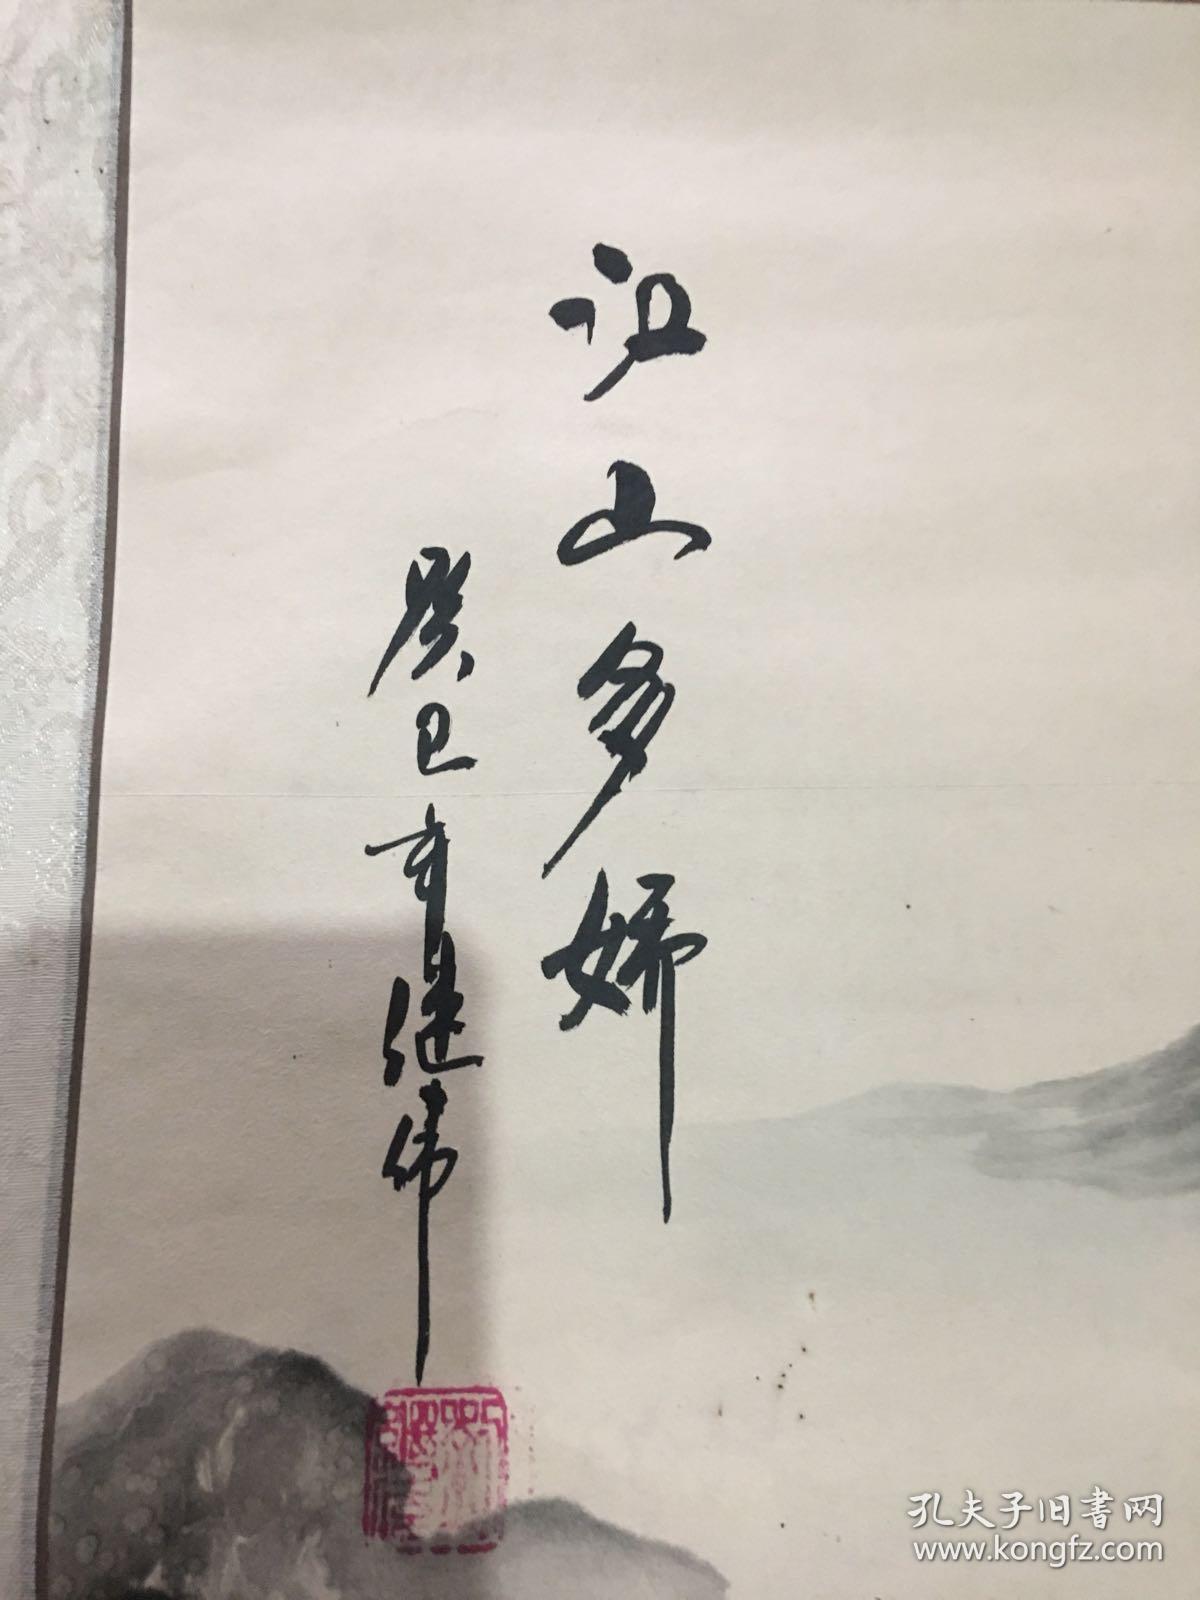 江山多娇
癸巳年继伟
孔夫子旧書网
www.kongfz.com